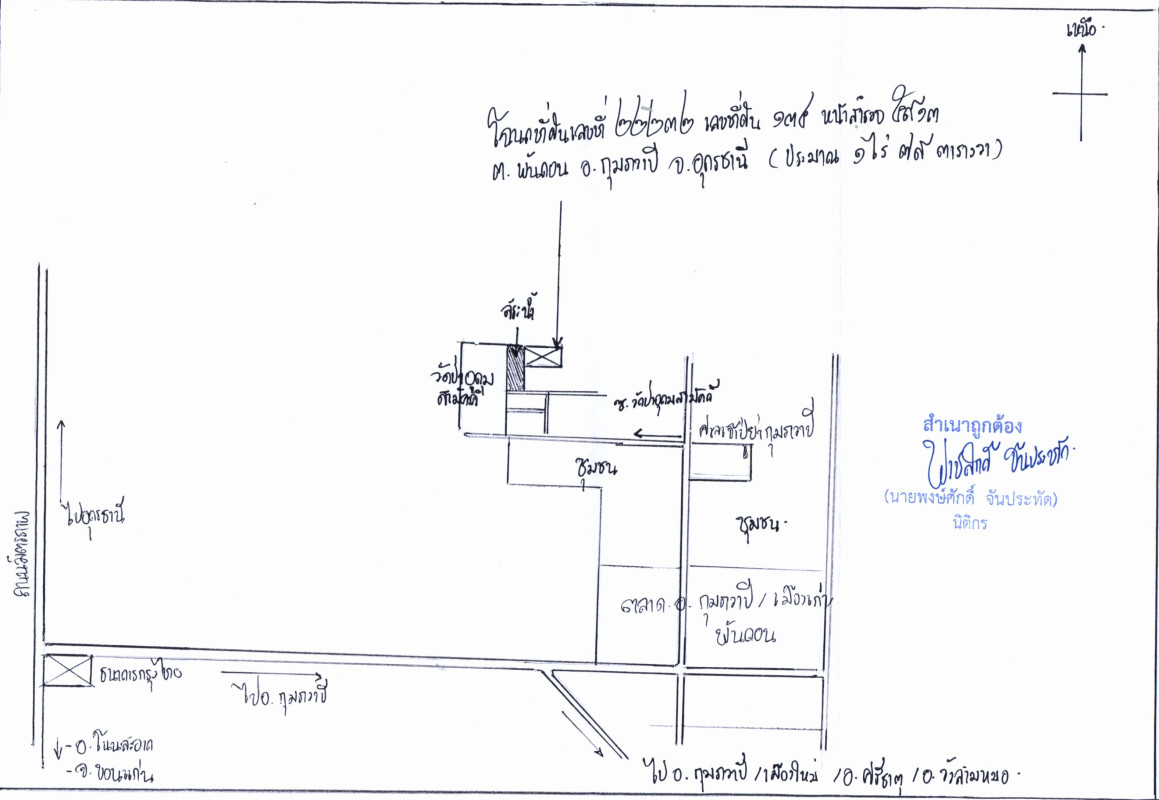 เหนือ
โฉนดที่ดินเลขที่ ๒๒๒๓๒ เลขที่ดิน ๑๓๕ หน้าสำรวจ
ต. พันดอน อ. กุมภวาปี จ. อุดรธานี (ประมาณ ๑ ไร่ ๗๕ ตารางวา)
สระน้ำ
วัดป่าอุดม
สามัคคี
ซ. วัดป่าอุดมสามัคคี
ศาลเจ้าปู่ย่า กุมภวาปี
ชุมชน
สำเนาถูกต้อง
(นายพงษ์ศักดิ์ จันประทัด)
นิติกร
ไปอุดรธานี
ถนนมิตรภาพ
ชุมชน
ตลาด อ. กุมภวาปี / เมืองเก่า
พันดอน
ธนาคารกรุงไทย
ไป อ. กุมภวาปี
- อ. โนนสะอาด
- จ. ขอนแก่น
ไป อ. กุมภวาปี / เมืองใหม่ / อ. ศรีธาตุ / อ. วังสามหมอ